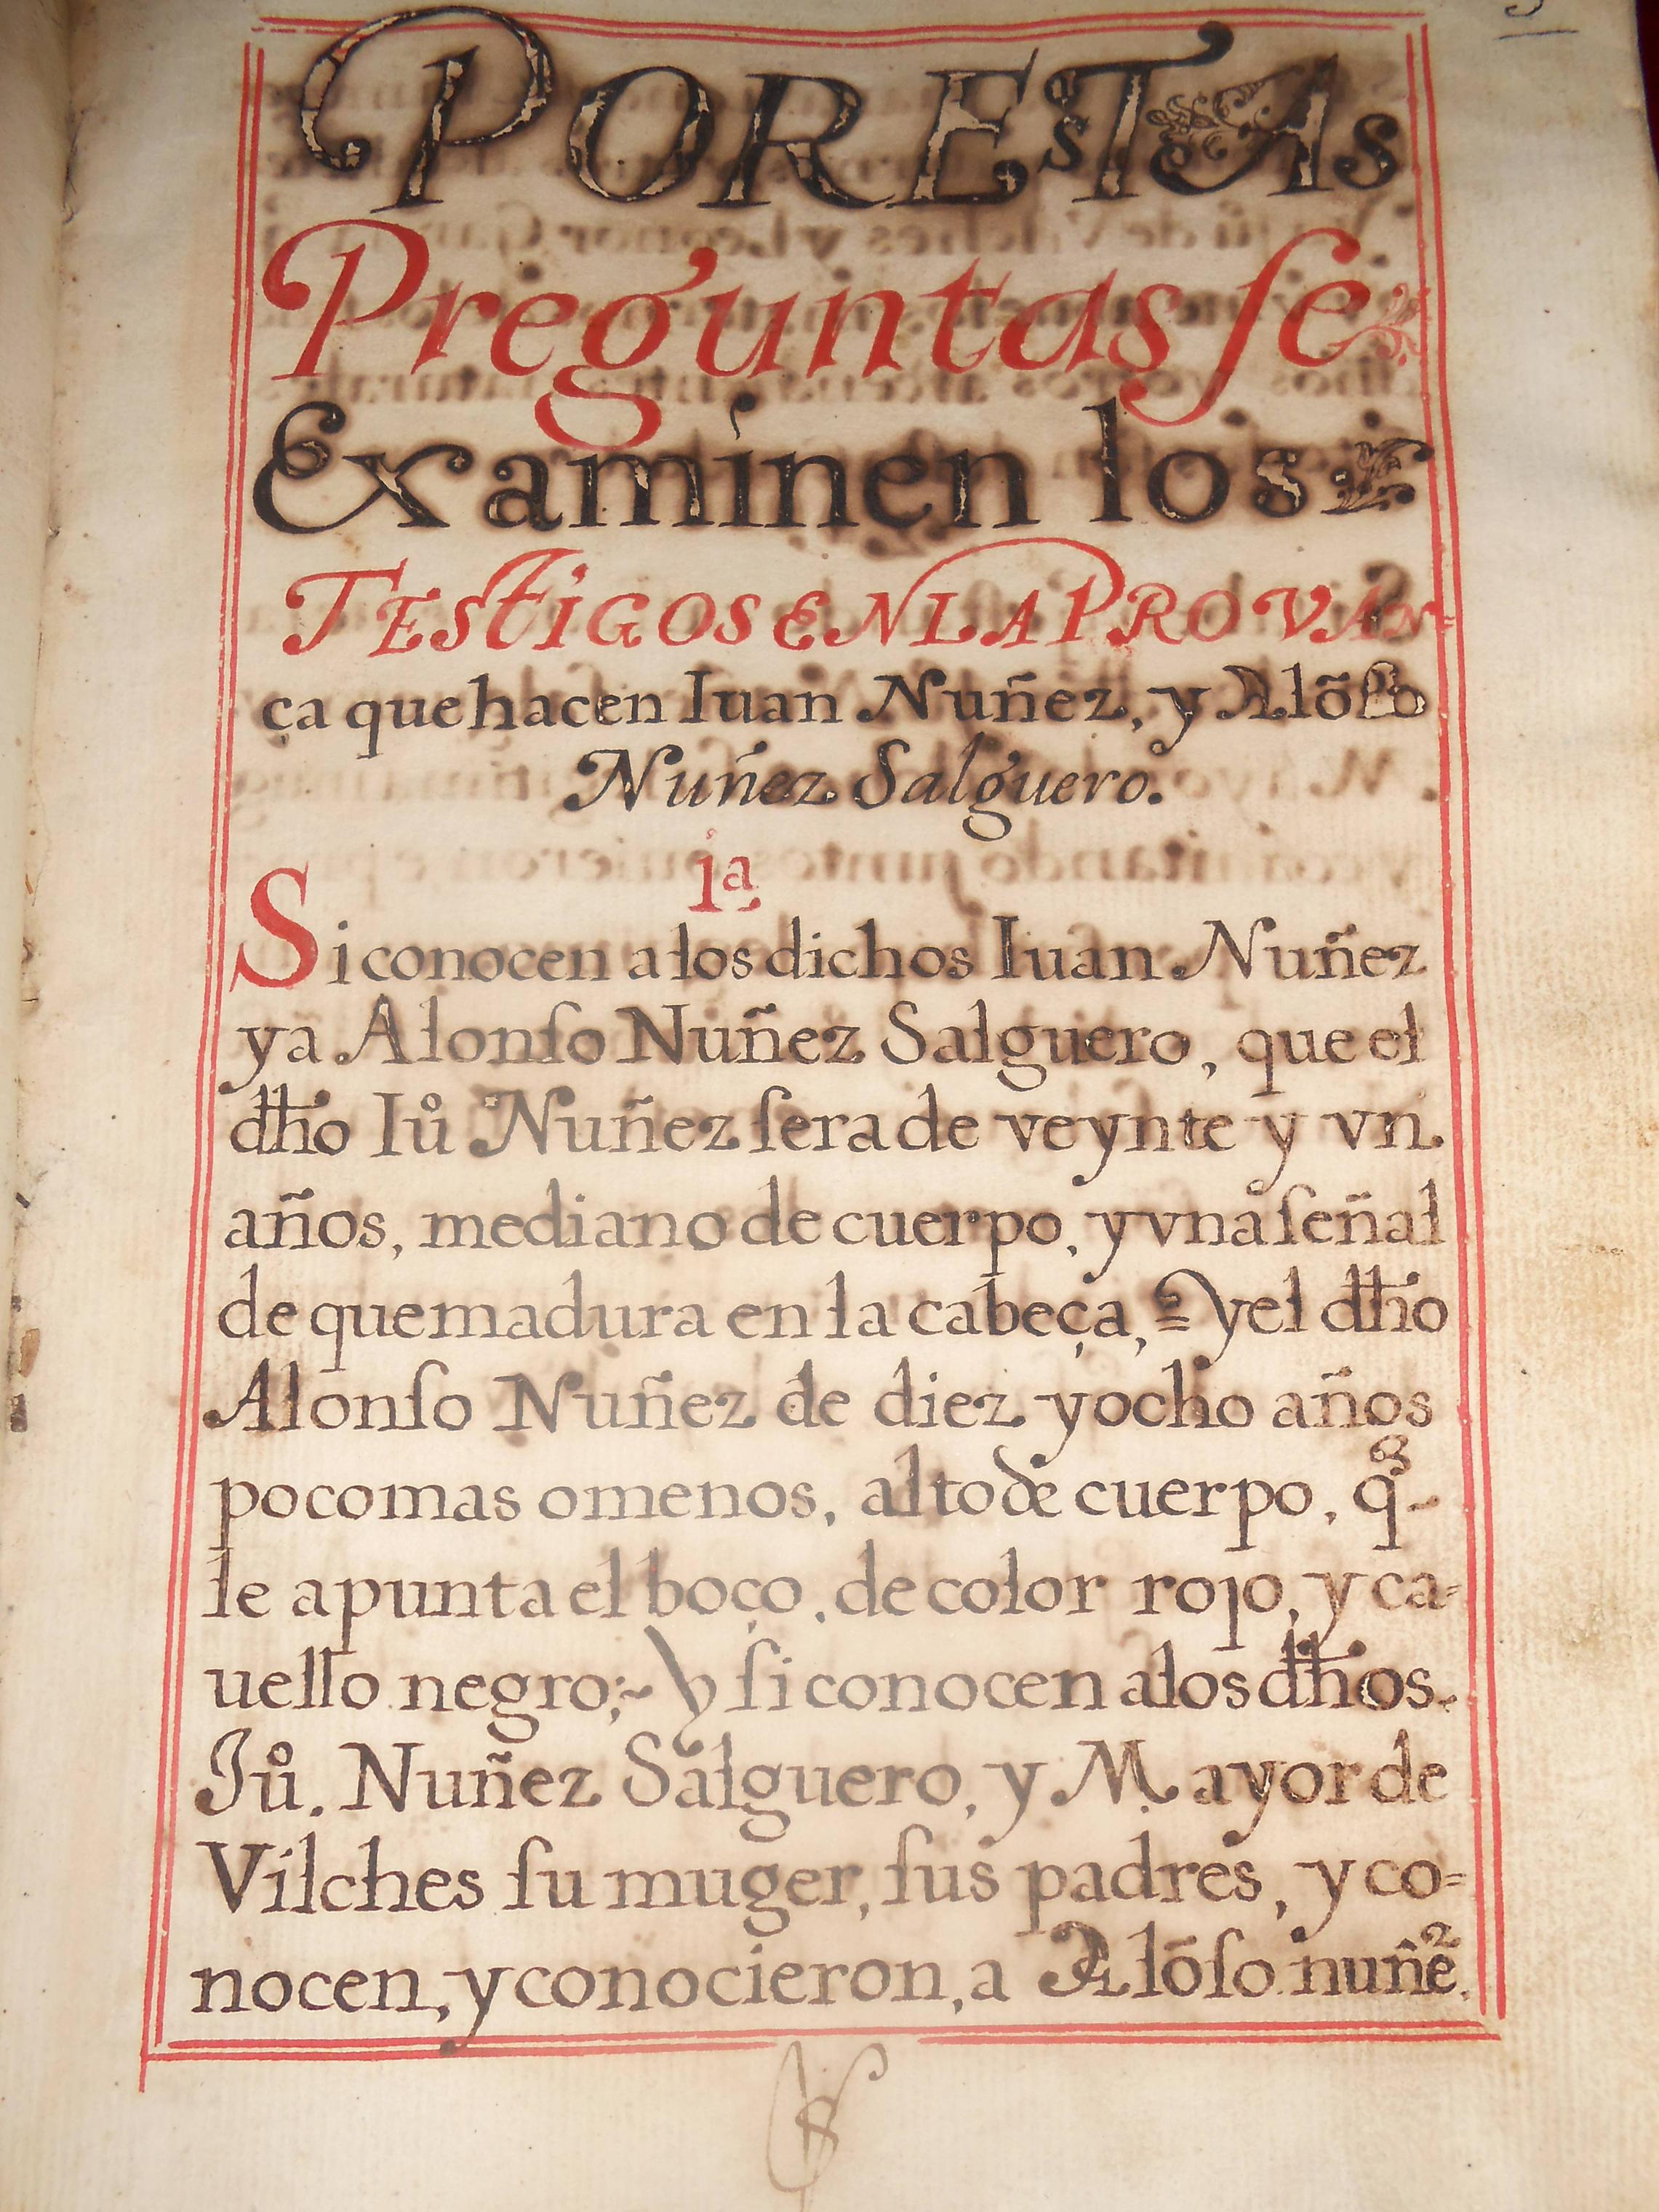 POR ESTAs
Preguntas ſe
Examinen los
TESTIGOS EN LA PROVAN=
ça que hacen Iuan Nuñez, y Alõſo
Nuñez Salguero.
1ª
Si conocen a los dichos Iuan Nuñez
y a Alonſo Nuñez Salguero, que el
dħo Iuº Nuñez ſera de veynte y vn
años, mediano de cuerpo, y vna ſeñal
de quemadura en la cabeça, y el dħo
Alonſo Nuñez de diez y ocho años
poco mas o menos, alto de cuerpo, q̃
le apunta el boço, de color rojo, y ca=
uello negro;~ y ſi conocen a los dħos.
Iuº. Nuñez Salguero, y Mayor de
Vilches ſu muger, ſus padres, y co=
nocen, y conocieron, a Alõſo nuñeᶻ